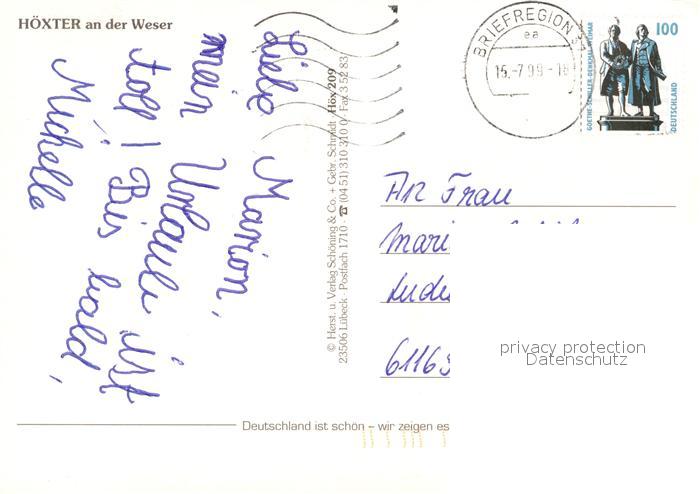 HÖXTER an der Weser
Liebe Marion,
mein Urlaub ist
toll! Bis bald,
Michelle
© Herst. u. Verlag Schöning & Co. + Gebr. Schmidt · Höx 209
23506 Lübeck · Postfach 1710 · ☎ (04 51) 310 310 0 · Fax 3 52 83
BRIEFREGION
ea
15.-7.99-18
GOETHE-SCHILLER-DENKMAL WEIMAR
100
DEUTSCHLAND
An Frau
Mari
61169
privacy protection
Datenschutz
Deutschland ist schön – wir zeigen es